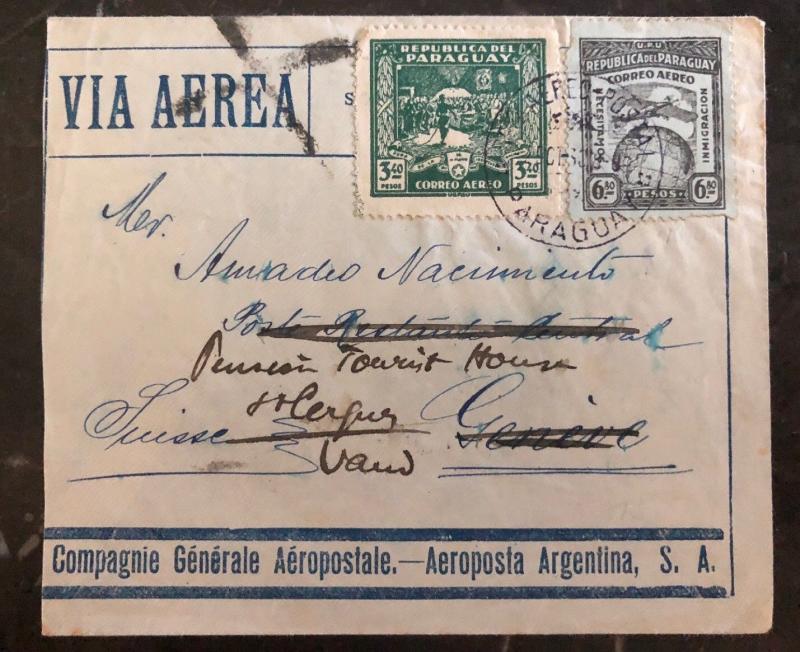 VIA AEREA
S
REPUBLICA DEL
PARAGUAY
3.40
PESOS
3.40
PESOS
CORREO AEREO
U.P.U
REPUBLICA DEL PARAGUAY
CORREO AEREO
NECESITAMOS
INMIGRACION
6.80
PESOS
6.80
AEREO POSTAL
PARAGUAY
Mr.
Amadeo Nacimiento
Poste Restante Central
Pension Tourist House
St Cergues
Suisse
Genève
Vaud
Compagnie Générale Aéropostale.—Aeroposta Argentina, S. A.